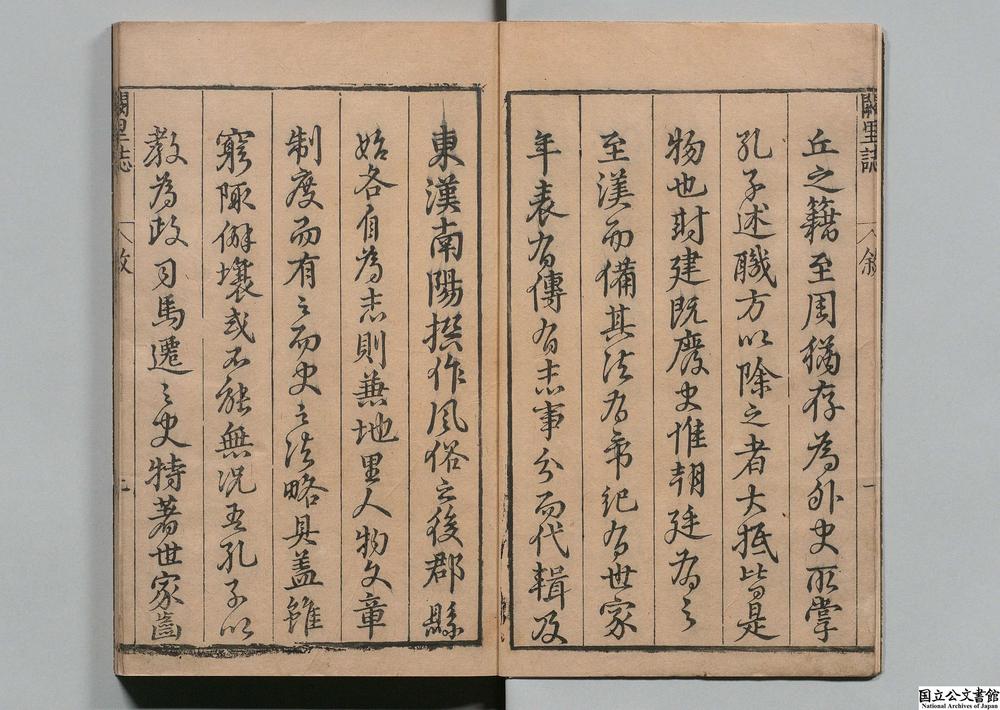 闕里誌
敘
一
丘之籍至周猶存為外史所掌
孔子述職方以除之者大抵皆是
物也封建既廢史惟朝廷為之
至漢而備其法有帝紀有世家
年表有傳有志事分而代輯及
東漢南陽撰作風俗之後郡縣
始各自為志則兼地里人物文章
制度而有之而史之法略具蓋雖
窮陬僻壤或不能無況吾孔子以
教為政司馬遷之史特著世家齒
闕里志
敘
国立公文書館
National Archives of Japan